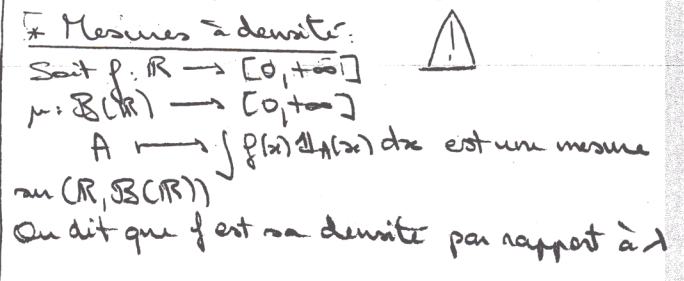 * Mesures à densité:
Soit f: ℝ → [0,+∞]
μ: 𝓑(ℝ) → [0,+∞]
A ↦ ∫ f(x) 𝟙_A(x) dx est une mesure
sur (ℝ, 𝓑(ℝ))
On dit que f est sa densité par rapport à λ